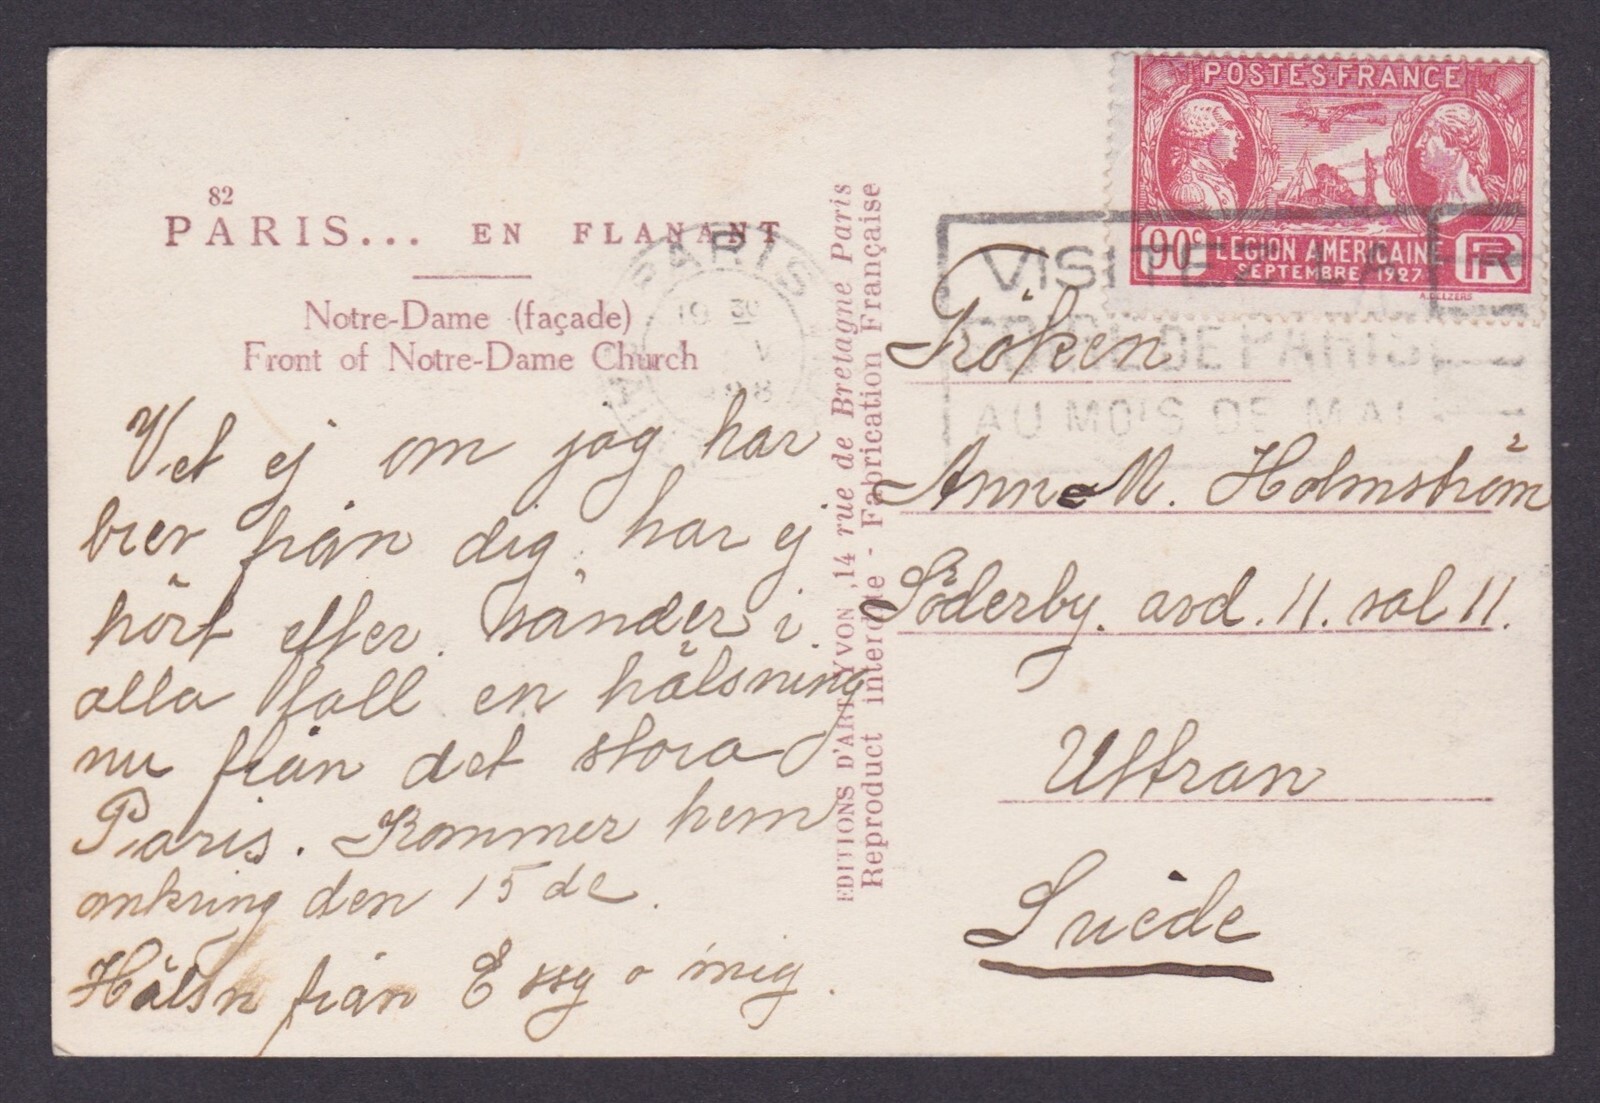 82
PARIS... EN FLANANT
Notre-Dame (façade)
Front of Notre-Dame Church
Vet ej om jag har
brev från dig. har ej
hört efter. sänder i
alla fall en hälsning
nu från det stora
Paris. Kommer hem
omkring den 15 de.
Hälsn från Essy o mig.
EDITIONS D'ART YVON, 14 rue de Bretagne Paris
Reproduct interdite - Fabrication Française
POSTES FRANCE
90c LEGION AMERICAINE RF
SEPTEMBRE 1927
A. DELZERS
PARIS
19 30
VISITEZ LA
FOIRE DE PARIS
AU MOIS DE MAI
Fröken
Anne M. Holmström
Söderby. avd. 11. sal 11.
Uttran
Suède